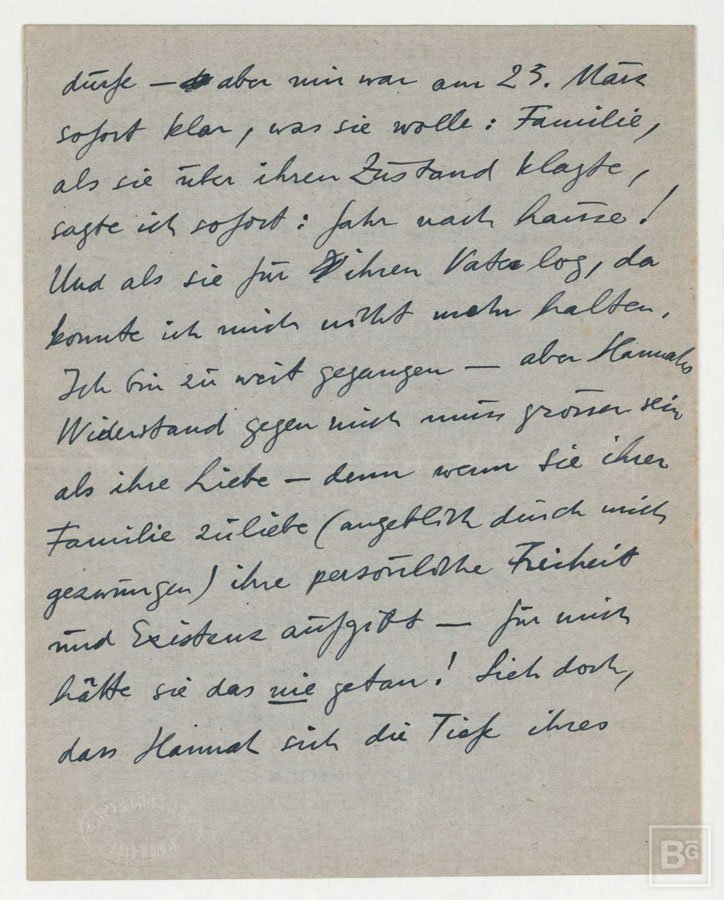 dürfe — aber mir war am 23. März
sofort klar, was sie wolle: Familie,
als sie über ihren Zustand klagte,
sagte ich sofort: fahr nach hause!
Und als sie für ihren Vater log, da
konnte ich mich nicht mehr halten.
Ich bin zu weit gegangen — aber Hannahs
Widerstand gegen mich muss grösser sein
als ihre Liebe — denn wenn sie ihrer
Familie zuliebe (angeblich durch mich
gezwungen) ihre persönliche Freiheit
und Existenz aufgibt — für mich
hätte sie das nie getan! Sieh doch,
dass Hannah sich die Tiefe ihres
BG